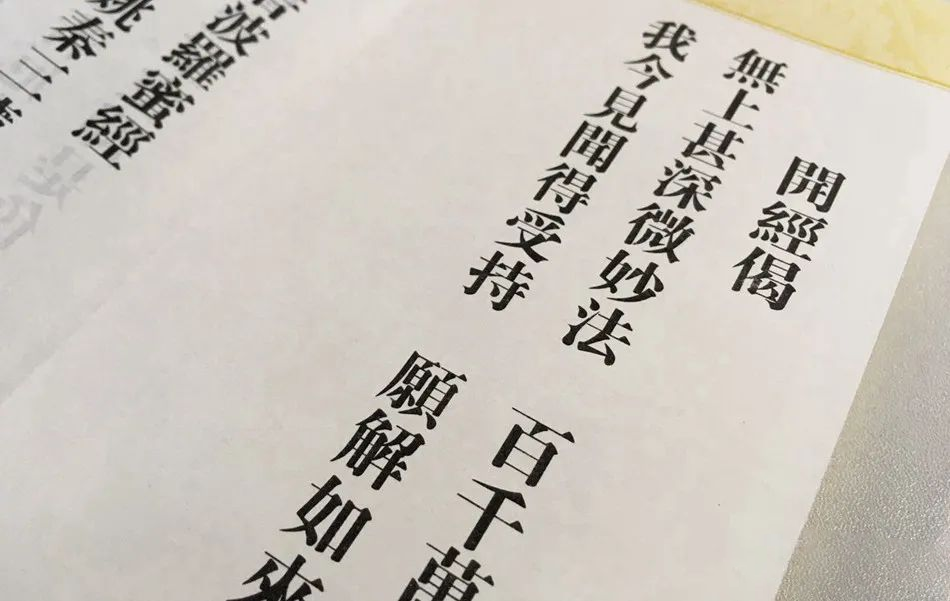 開經偈
無上甚深微妙法　百千萬
我今見聞得受持　願解如來
波羅蜜經
姚秦三